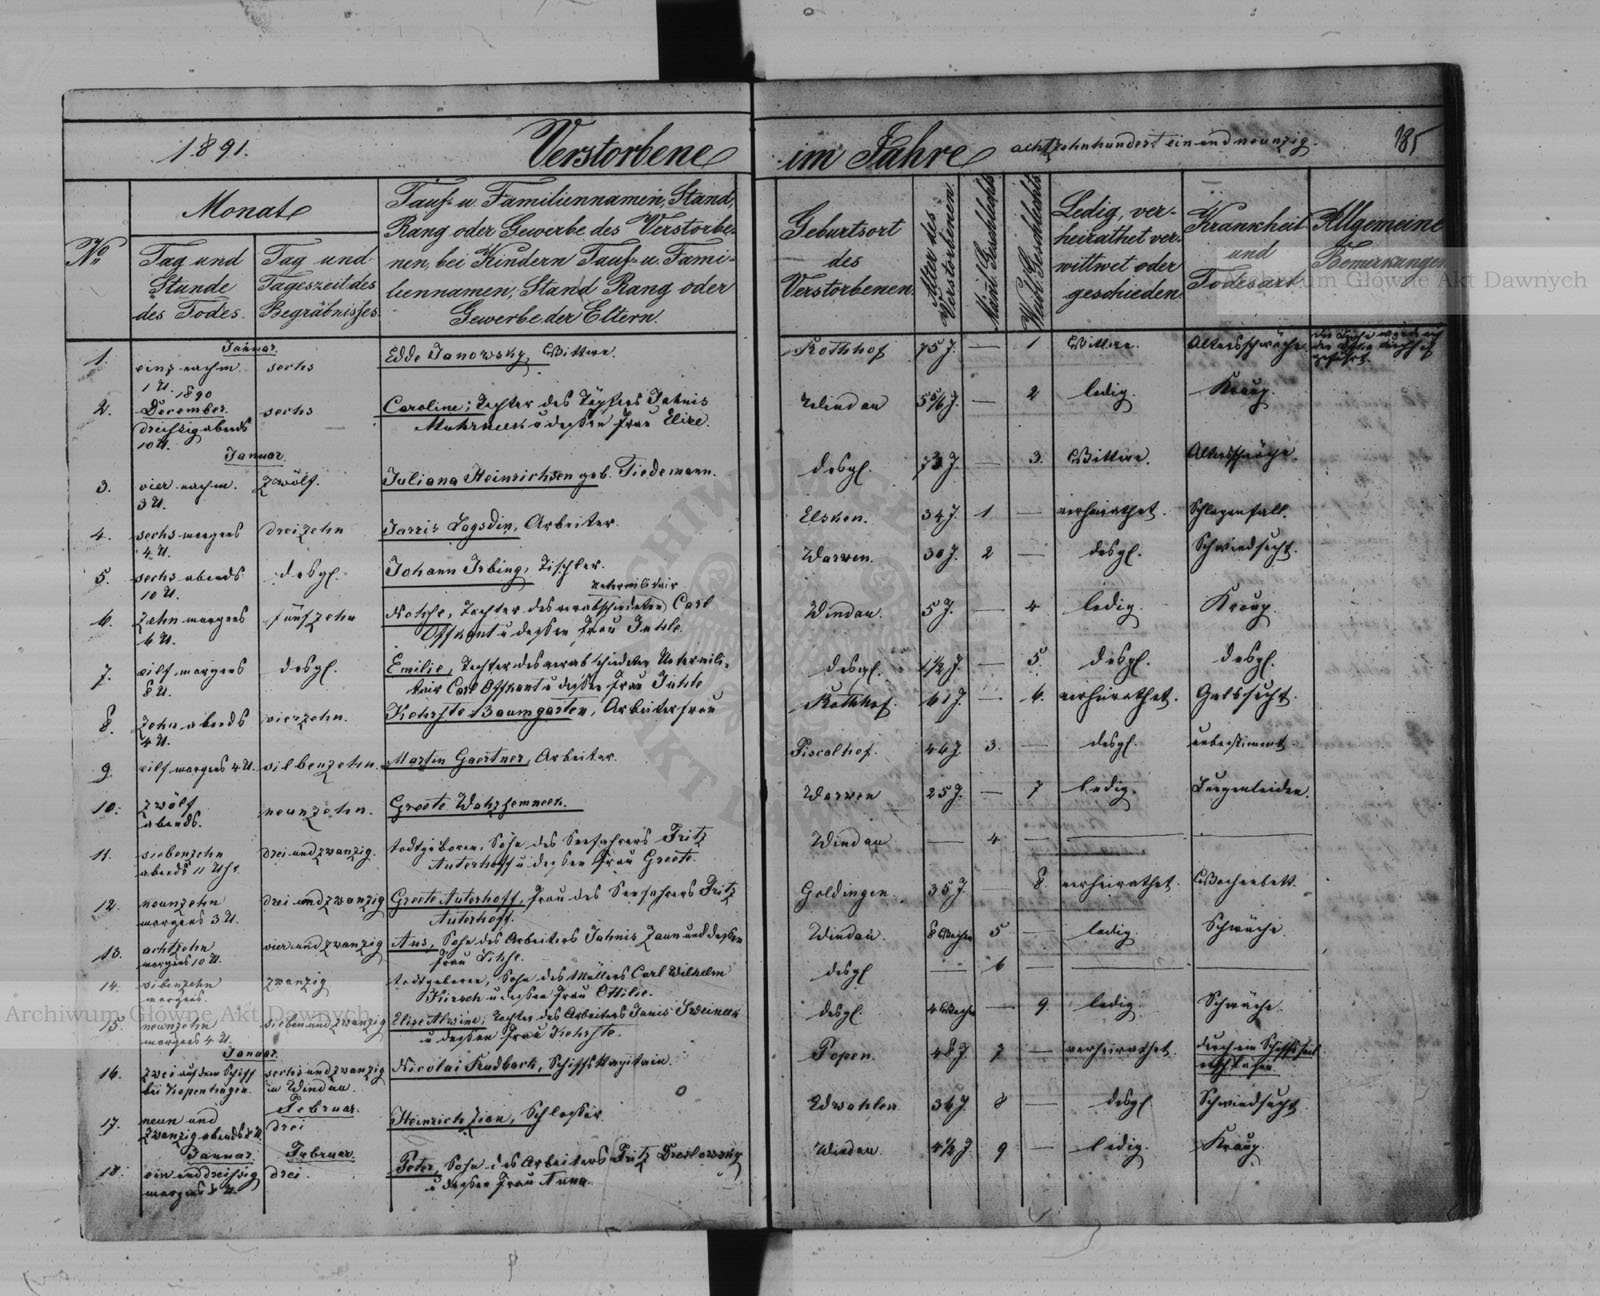 1891.
Verstorbene
im Jahre achtzehnhundert ein und neunzig.
185
No
Monat
Tag und
Stunde
des Todes.
Tag und
Tageszeit des
Begräbnisses.
Tauf- u. Familiennamen, Stand,
Rang oder Gewerbe des Verstorbe-
nen, bei Kindern Tauf- u. Fami-
liennamen, Stand Rang oder
Gewerbe der Eltern.
Geburtsort
des
Verstorbenen.
Alter des
Verstorbenen.
Männl. Geschlechts
Weibl. Geschlechts
Ledig, ver-
heirathet ver-
wittwet oder
geschieden.
Krankheit
und
Todesart.
Allgemeine
Bemerkungen
Januar.
1. eins nachm. sechs Edde Janowsky, Wittwe. Rothhof 75 J. — 1 Wittwe. Altersschwäche.
1 U.
1890
2. December. sechs Caroline; Tochter des Töpfers Jahnis Windau J. — 2 ledig. Kroup.
dreißig abends u dessen Frau Elise.
10 U.
Januar.
3. vier nachm. zwölf. Juliana Heinrichsen geb. Tiedemann. desgl. 73 J. — 3. Wittwe. Altersschwäche.
3 U.
4. sechs morgens dreizehn Jagsdin, Arbeiter. 34 J. 1 — verheirathet.
4 U.
5. sechs abends desgl. Johann Irbing, Tischler. Warwen. 30 J. 2 — desgl. Schwindsucht.
10 U.
6. zehn morgens fünfzehn Tochter des verabschiedeten Untermilitair Carl Windau. 5 J. — 4 ledig. Kroup.
4 U. Offkant u dessen Frau
7. eilf morgens desgl. Emilie, Tochter des verabschiedeten Untermili- desgl. 1½ J. — 5. desgl. desgl.
8 U. tair Carl Offkant u dessen Frau
8. zehn abends vierzehn. Kehrste Baumgarten, Arbeiterfrau Rothhof. 61 J. — 6. verheirathet. Gelbsucht.
4 U.
9. eilf morgens 4 U. siebenzehn. Martin Gaertner, Arbeiter. Fiscalhof. 44 J. 3. — desgl. unbestimmt.
10. zwölf neunzehn. Greete Warwen 25 J. — 7 ledig. Lungenleiden.
abends.
11. siebenzehn drei und zwanzig. todtgeboren, Sohn des Seefahrers Fritz Windau — 4 —
abends 11 Uhr. Auterhoff u dessen Frau Greete.
12. neunzehn drei und zwanzig Greete Auterhoff, Frau des Seefahrers Fritz Goldingen. 35 J. — 8. verheirathet. Wochenbett.
morgens 3 U. Auterhoff.
13. achtzehn vier und zwanzig Ans, Sohn des Arbeiters Jahnis Zaun und dessen Windau. 8 Wochen 5 — ledig. Schwäche.
morgens 10 U. Frau
14. siebenzehn zwanzig todtgeboren, Sohn des Müllers Carl Wilhelm desgl — 6 —
morgens. Kirsch u dessen Frau Ottilie.
15. neunzehn sieben und zwanzig Elise Alwine; Tochter des Arbeiters Janis desgl. 4 Wochen — 9. ledig. Schwäche.
morgens 4 U. u dessen Frau Kehrste.
Januar.
16. zwei auf dem Schiff sechs und zwanzig Nicolai Kudbach, Schiffskapitain. Popen. 48 J 7 — verheirathet. durch ein
bei Kopenhagen. in Windau.
Februar.
17. neun und drei Heinrich Zion, Schlosser. Edwahlen 34 J. 8 — desgl. Schwindsucht.
zwanzig abends 8 U.
Januar. Februar.
18. ein und dreißig drei. Peter, Sohn des Arbeiters Fritz Windau. 4½ J. 9 — ledig. Kroup.
morgens 8 U. u dessen Frau Anna.
Archiwum Główne Akt Dawnych
Archiwum Główne Akt Dawnych